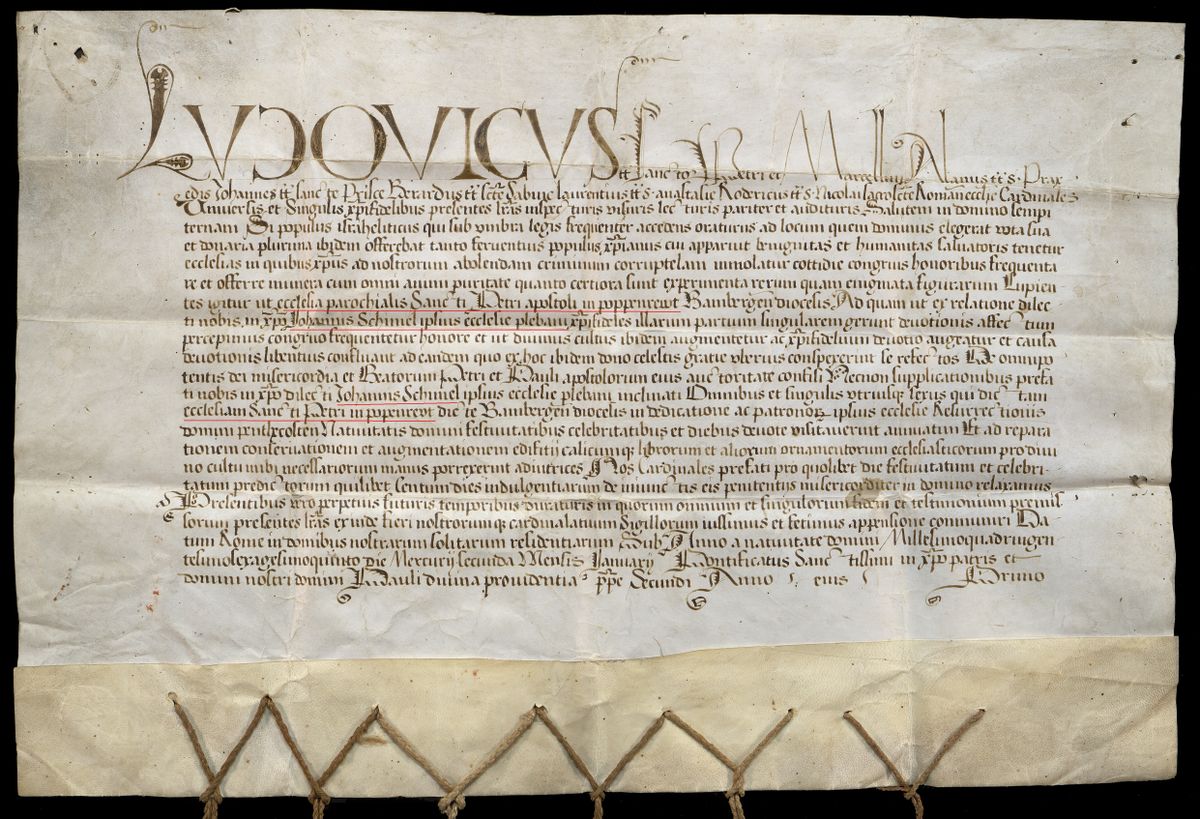 LUDOVICUS tt̄ Sanctor Petri et Marcellini Alanus tt̄ s. Prax
edis Johannes tt̄ sanctē Prisce Berardus tt̄ sctē Sabine Laurentius tt̄ s. anastasie Rodericus tt̄ s. Nicolai sacrosctē Romane ecclīe Cardinales
Universis et Singulis xp̄ifidelibus presentes lr̄as inspecturis visuris lecturis pariter et audituris Salutem in domino sempi
ternam Si populus israheliticus qui sub umbra legis frequenter accedens oraturus ad locum quem dominus elegerat vota sua
et donaria plurima ibidem offerebat tanto ferventius populus xp̄ianus cui apparuit benignitas et humanitas salvatoris tenetur
ecclesias in quibus xp̄us ad nostrorum abolendam criminum corruptelam immolatur cottidie congruis honoribus frequenta
re et offerre munera cum omni animi puritate quanto certiora sunt experimenta rerum quam enigmata figurarum Cupien
tes igitur ut ecclesia parochialis Sancti Petri apostoli in poppenrewt Bambergen̄ diocesis Ad quam ut ex relatione dilec
ti nobis in xp̄o Johannis Schmel ipsius ecclesie plebani xp̄ifideles illarum partium singularem gerunt devotionis affectum
percepimus congruo frequentetur honore et ut divinus cultus ibidem augmentetur ac xp̄ifidelium devotio augeatur et causa
devotionis libentius confluant ad eandem quo ex hoc ibidem dono celestis gratie uberius conspexerint se refectos De omnipo
tentis dei misericordia et Beatorum Petri et Pauli apostolorum eius auctoritate confisi Necnon supplicationibus prefa
ti nobis in xp̄o dilecti Johannis Schmel ipsius ecclesie plebani inclinati Omnibus et singulis utriusque sexus qui dictam
ecclesiam Sancti Petri in popenrewt dicte Bambergen̄ diocesis in dedicatione ac patronoꝝ ipsius ecclesie Resurrectionis
domini penthecosten Nativitatis domini festivitatibus celebritatibus et diebus devote visitaverint annuatim Et ad repara
tionem conservationem et augmentationem edificij calicumqꝫ librorum et aliorum ornamentorum ecclesiasticorum pro divi
no cultu inibi necessariorum manus porrexerint adiutrices Nos Cardinales prefati pro quolibet die festivitatum et celebri
tatum predictorum quilibet Centum dies indulgentiarum de iniunctis eis penitentijs misericorditer in domino relaxamus
Presentibus vero perpetuis futuris temporibus duraturis in quorum omnium et singulorum fidem et testimonium premis
sorum presentes lr̄as exinde fieri nostrorumqꝫ cardinalatuum Sigillorum iussimus et fecimus appensione communiri Da
tum Rome in domibus nostrarum solitarum residentiarum Sub Anno a nativitate domini Millesimoquadringen
tesimosexagesimoquinto die Mercurij secunda Mensis Januarij Pontificatus Sanctissimi in xp̄o patris et
domini nostri domini Pauli divina providentia pp̄e Secundi Anno eius Primo